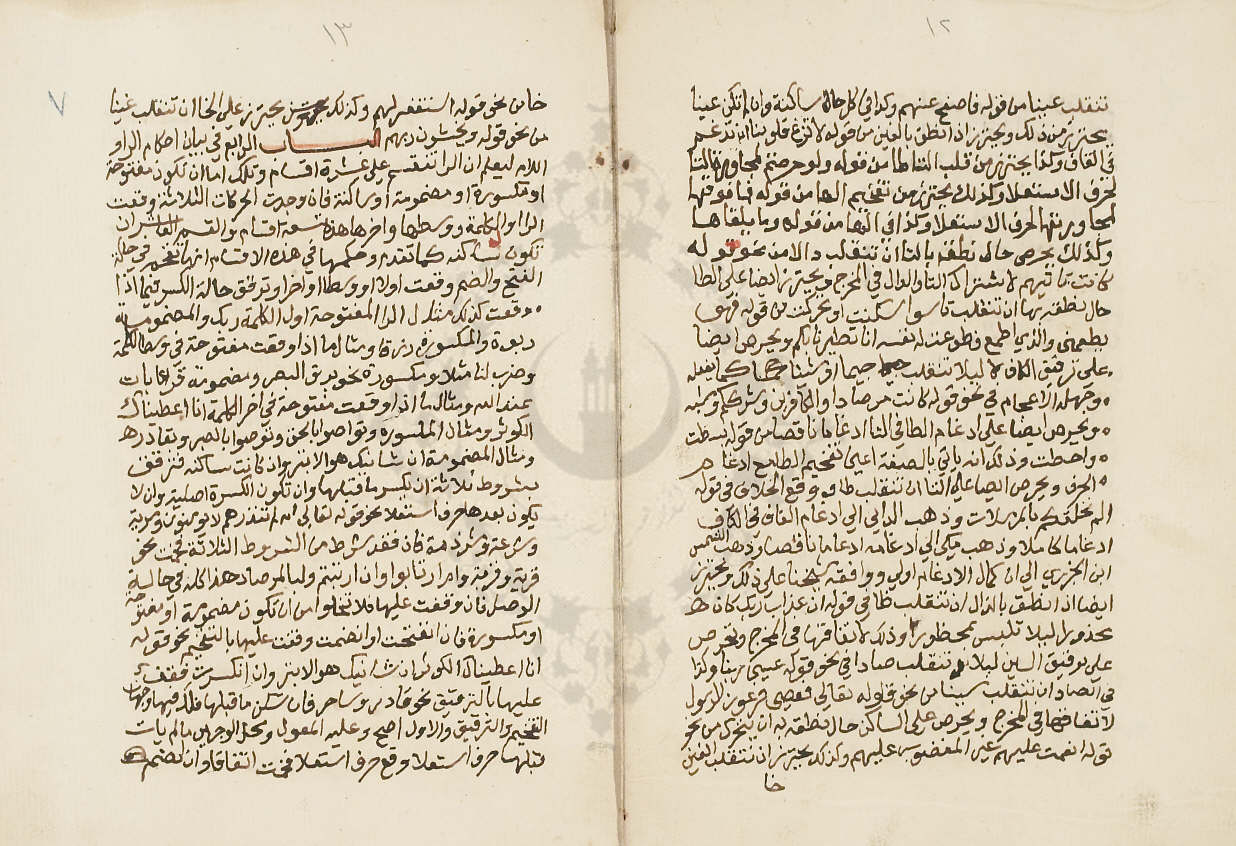 ١٢
تنقلب عينا من قوله فاصفح عنهم وكذا في كل حالة ساكنة وان لم تكن عينا
يحترز من ذلك ويحترز اذا نطق بالغين من قوله لا تزغ قلوبنا ان تدغم
في القاف وكذا يحترز من قلب التا طا من قوله ولو حرصتم لمجاورة التا
لحرف الاستعلا وكذلك يحترز من تفخيم الها من قوله فما فوقها
لمجاورتها لحرف الاستعلا وكذا في الها من قوله وما يلقاها
وكذلك يحرص حال نطقه بالتا ان تنقلب دالا من نحو قوله
كانت تاتيهم لاشتراك التا والدال في المخرج ويحترز ايضا على الطا
حال نطقه بها ان تنقلب تا سوا سكنت او تحركت من قوله فهو
يطعمني والذي اطمع وطوعت له نفسه انا تطيرنا بكم ويحرص ايضا
على ترقيق الكاف لا ليلا تنقلب كما يفعله
وجهلة الاعجام في نحو قوله كانت مرصادا والكافرين وشرككم
ويحرص ايضا على ادغام الطا في التا ادغاما ناقصا من قوله بسطت
واحطت وذلك ان ياتي بالصفة اعني تفخيم الطا مع ادغام
الحرف ويحرص ايضا على التا ان تنقلب طا ووقع الخلاف في قوله
الم نخلقكم بالمرسلات وذهب الداني الى ادغام القاف في الكاف
ادغاما كاملا وذهب مكي الى ادغامه ادغاما ناقصا وذهب الشمس
ابن الجزري الى ان كمال الادغام اولى ووافقه شيخنا على ذلك ويحترز
ايضا اذا نطق بالذال ان تنقلب ظا في قوله ان عذاب ربك كان
محذورا ليلا تلتبس بمحظورا وذلك لاتفاقهما في المخرج ويحرص
على ترقيق السين ليلا تنقلب صادا في نحو قوله عسى ربنا وكذا
في الصاد ان تنقلب سينا من نحو قوله تعالى فعصى فرعون الرسول
لاتفاقهما في المخرج ويحرص على الساكن حال نطقه به ان يتحرك من نحو
قوله انعمت عليهم غير المغضوب عليهم وكذلك يحترز ان تنقلب الغين
خا
١٣
٧
خا من نحو قوله استغفر لهم وكذلك يحترز على الخا ان تنقلب غينا
من نحو قوله ويخشون ربهم الباب الرابع في بيان احكام الرا و
اللام ليعلم ان الرا تنقسم على عشرة اقسام وتلك اما ان تكون مفتوحة
او مكسورة او مضمومة او ساكنة فان وجدت الحركات الثلاثة وقعت
الرا اول الكلمة ووسطها واخرها هذه تسعة اقسام والقسم العاشر ان
تكون ساكنة كما تقدم وحكمها في هذه الاقسام انها تفخم في حالة
الفتح والضم وقعت اولا او وسطا او اخرا وترقق حالة الكسر فيما اذا
وقعت كذلك مثال الرا المفتوحة اول الكلمة ربك والمضمومة
ربوة والمكسورة رزقا ومثال ما اذا وقعت مفتوحة في وسط الكلمة
وضرب لنا مثلا ومكسورة نحو برق البصر ومضمومة قربات
عند الله ومثال ما اذا وقعت مفتوحة في اخر الكلمة انا اعطيناك
الكوثر ومثال المكسورة وتواصوا بالحق وتوصوا بالصبر
ومثال المضمومة ان شانيك هو الابتر وان كانت ساكنة فترقق
بشروط ثلاثة ان يكسر ما قبلها وان تكون الكسرة اصلية وان لا
يكون بعدها حرف استعلا نحو قوله تعالى ام لم تنذرهم لا يومنون ومرية
وشرعة وشرذمة فان فقد شرط من الشروط الثلاثة فخمت نحو
قرية وفرقة وام ارتابوا وان ارتبتم ولبالمرصاد هذا كله في حالة
الوصل فان وقفت عليها فلا تخلوا من ان تكون مضمومة او مفتوحة
او مكسورة فان انفتحت او انضمت وقفت عليها بالتفخيم نحو قوله
انا اعطيناك الكوثر ان شانيك هو الابتر وان انكسرت فقف
عليها بالترقيق نحو قادر وساحر فان سكن ما قبلها فلك فيها وجهان
التفخيم والترقيق والاول اصح وعليه المعول ومحل الوجهين ما لم يات
قبلها حرف استعلا وقع حرف استعلا فخمت اتفاقا وان انضم